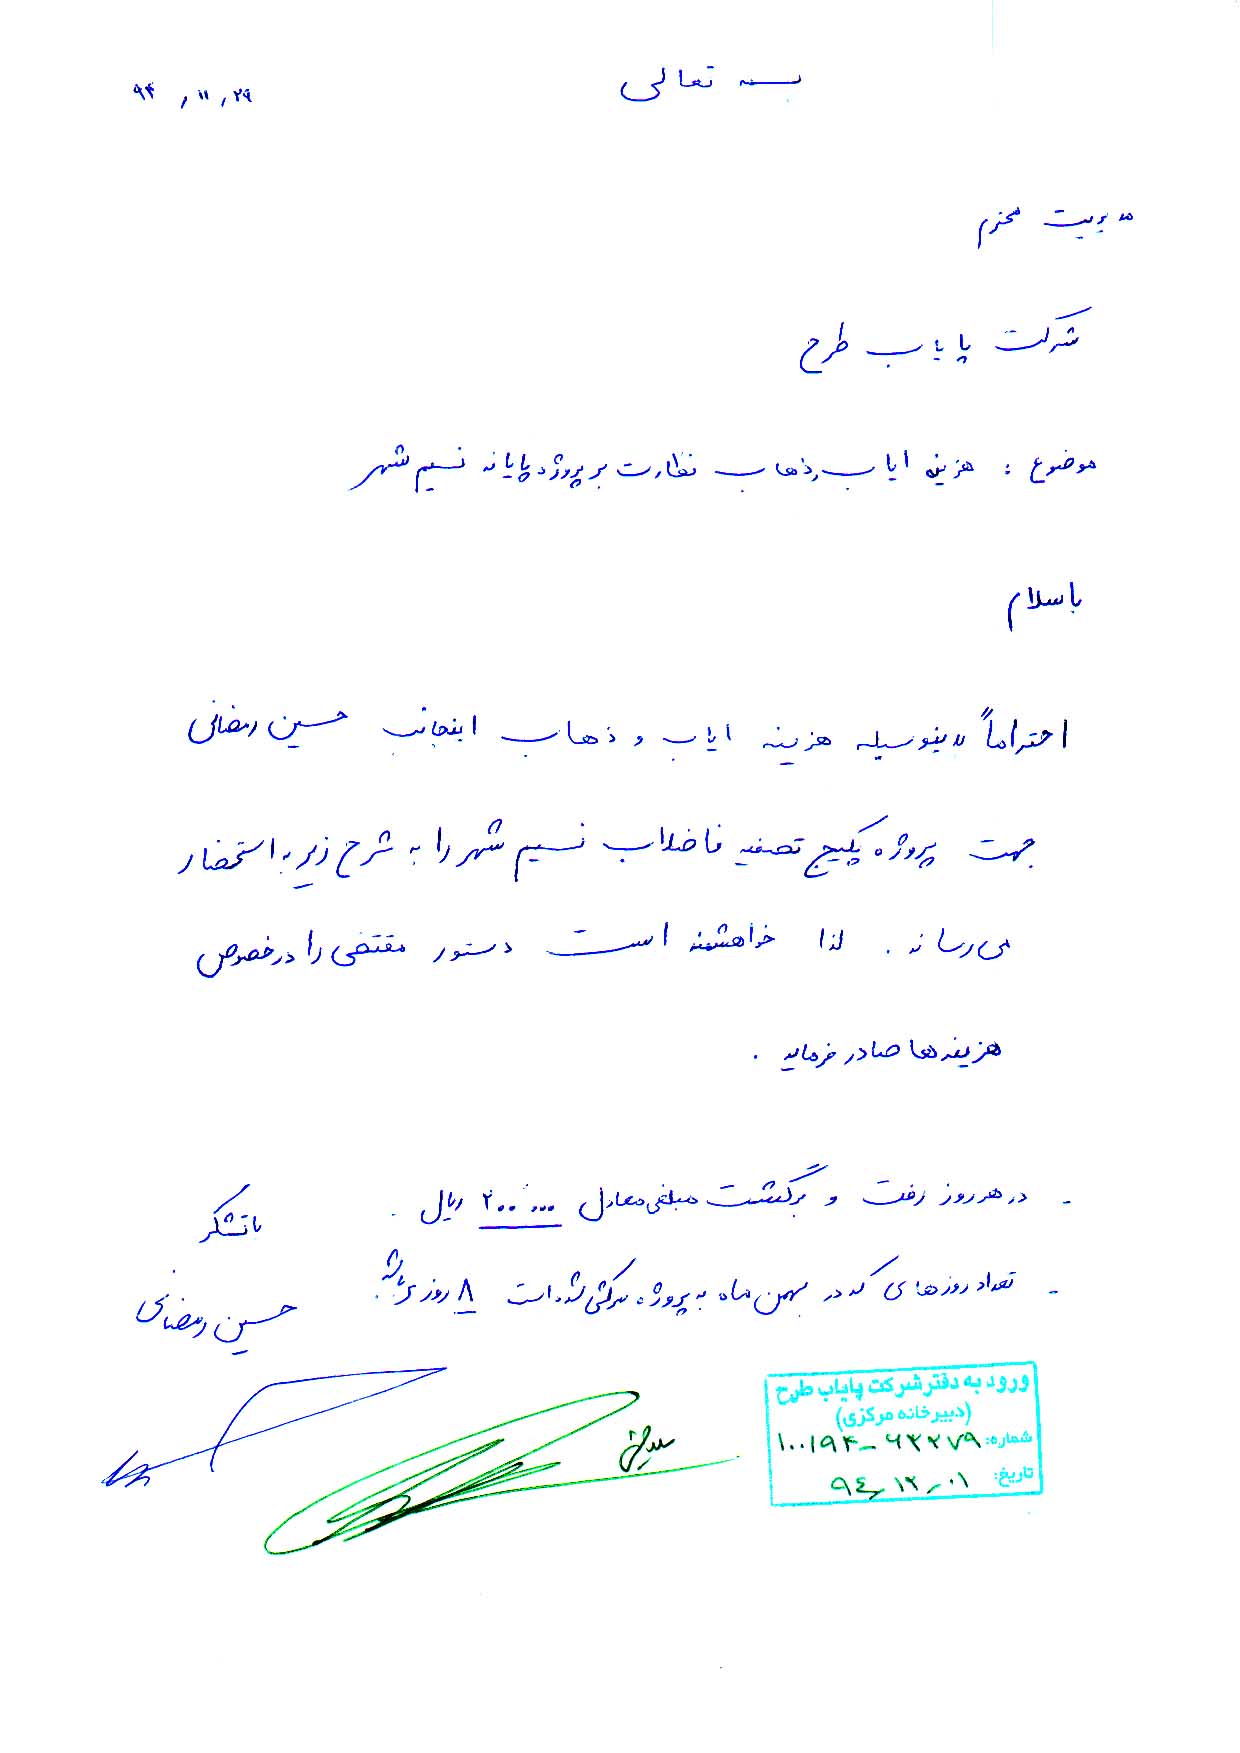 بسمه تعالی
۹۴/۱۱/۲۹
مدیریت محترم
شرکت پایاب طرح
موضوع : هزینه ایاب و ذهاب نظارت بر پروژه پایانه نسیم شهر
با سلام
احتراماً بدینوسیله هزینه ایاب و ذهاب اینجانب حسین رمضانی
جهت پروژه پکیج تصفیه فاضلاب نسیم شهر را به شرح زیر به استحضار
می رساند . لذا خواهشمند است دستور مقتضی را در خصوص
هزینه ها صادر فرمایید .
- در هر روز رفت و برگشت مبلغی معادل ۲۰۰,۰۰۰ ریال .
- تعداد روزهای که در بهمن ماه به پروژه سرکشی شده است ۸ روز می باشد.
با تشکر
حسین رمضانی
ورود به دفتر شرکت پایاب طرح
(دبیرخانه مرکزی)
شماره: ۱۰۰۱۹۴-۶۲۲۷۹
تاریخ: ۹۴/۱۲/۰۱